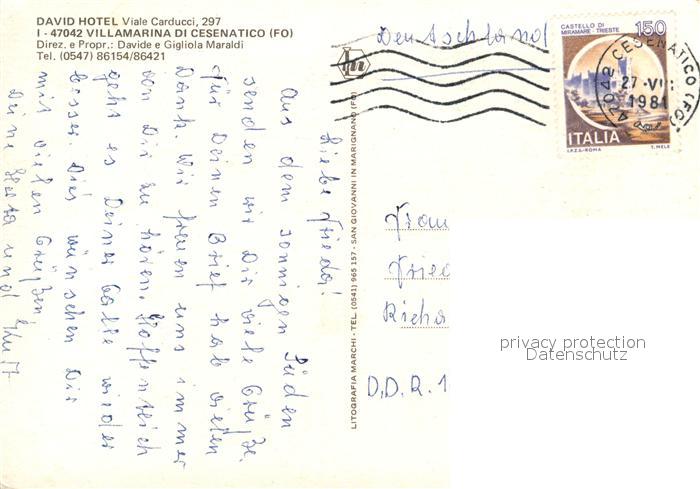 DAVID HOTEL Viale Carducci, 297
I - 47042 VILLAMARINA DI CESENATICO (FO)
Direz. e Propr.: Davide e Gigliola Maraldi
Tel. (0547) 86154/86421
Liebe Frieda!
Aus dem sonnigen Süden
senden wir Dir viele Grüße.
Für Deinen Brief hab vielen
Dank. Wir freuen uns immer
von Dir zu hören. Hoffentlich
geht es Deiner Galle wieder
besser. Dies wünschen Dir
mit vielen Grüßen
Deine Herta und
LITOGRAFIA MARCHI - TEL. (0541) 965 157 - SAN GIOVANNI IN MARIGNANO (FO)
Deutschland
CASTELLO DI
MIRAMARE - TRIESTE
150
ITALIA
I.P.Z.S. - ROMA T. MELE
47042 CESENATICO (FO)
27 - VII
1981
Frau
Fried
Richa
D.D.R. 1
privacy protection
Datenschutz